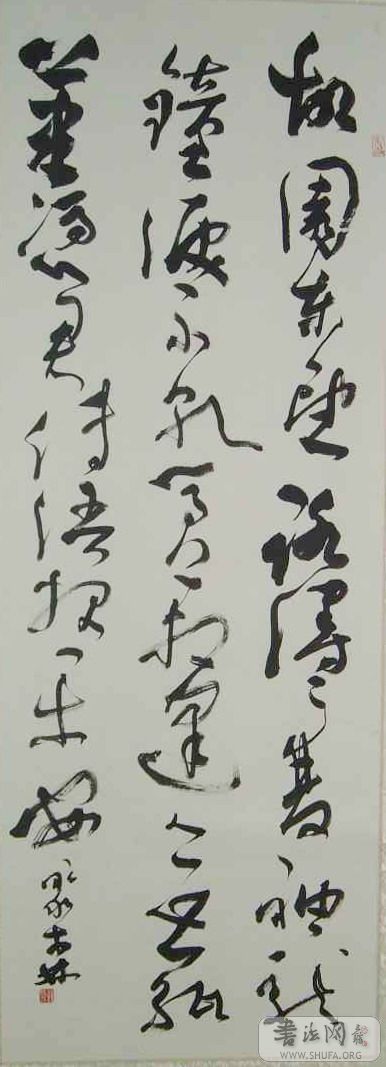 故園東望路漫々雙袖龍
鐘淚不乾馬上相逢無紙
筆憑君傳語報平安
書法网
WWW.SHUFA.ORG